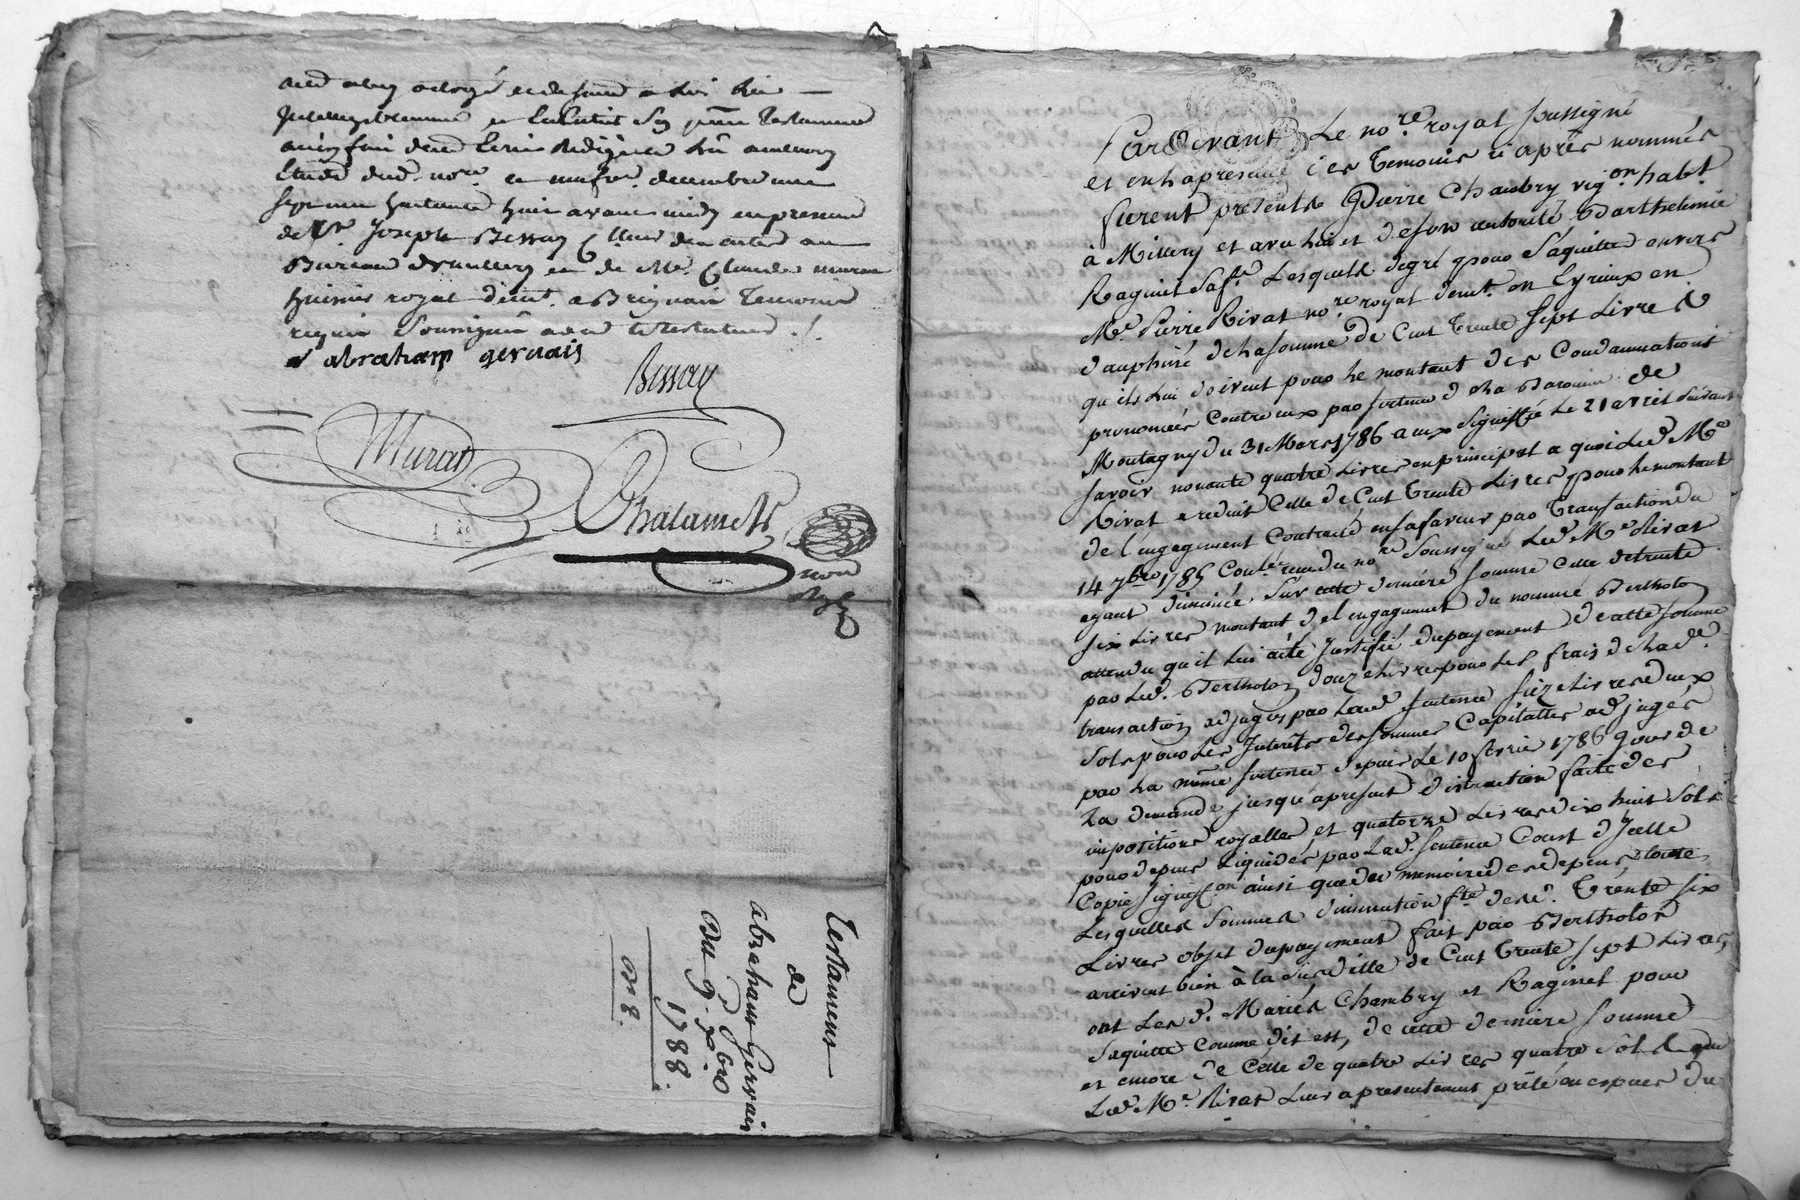 et de faire à lui
Testament
Etude dud. no.re ce neuf decembre mil
sept cent quatre vingt huit avant midy en presence
de Sr. Joseph Bessay
Bureau de Millery et de Me. Claude Murat
huissier royal demt. a Brignais Temoins
requis soussignés avec le testateur ./.
abraham gervais
Bessay
Murat
Chalamel
Testament
de
abraham Gervais
Du 9. Xbre
1788.
on 8.
Pardevant Le no.re royal soussigné
et en la presence des temoins ci après nommés
furent presents Pierre Chambry vig.on habt.
à Millery et avec lui et de son autorité Barthelemie
Raginet sa fe. Lesquels de gré pour s'aquitter envers
Me. Pierre Rivat no.re royal demt. en Eyrieux en
dauphiné de la somme de Cent Trente sept Livres
qu'ils lui doivent pour le montant des Condamnations
prononcées contre eux par sentence de la Baronnie de
Montagny du 31 Mars 1786 a eux signiffié le 21 avril suivant
savoir nonante quatre Livres en principal a quoi led. Me.
Rivat a reduit celle de Cent trente Livres pour le montant
de l'engagement contracté en sa faveur par Transaction du
14 7bre 1785 reçue du no.re soussigné led. Me. Rivat
ayant diminué sur cette derniere somme celle de trente
six Livres montant de l'engagement du nommé Bertholon
attendu qu'il lui a été justifié du payement de cette somme
par led. Bertholon, douze livres pour les frais de lad.
transaction adjugés par lad. sentence, seize livres deux
sols pour les Interêts des sommes Capitalles adjugés
par la même sentence depuis le 10 fevrier 1786 jour de
la demande jusqu'a present distraction faite des
impositions royalles, et quatorze Livres dix huit sols
pour depens liquidés par lad. sentence Coust d'Icelle
Copie signiff.on ainsi que des memoires de depens, toutes
Lesquelles sommes diminution fte. desd. Trente six
Livres objet du payement fait par Bertholon
arrivent bien à la susditte de Cent Trente sept Livres,
ont Lesd. Mariés Chambry et Raginet pour
s'aquitter comme dit est, de cette derniere somme
et encore de celle de quatre Livres quatre sols que
Led. Me. Rivat leur a presentement prêté en especes du